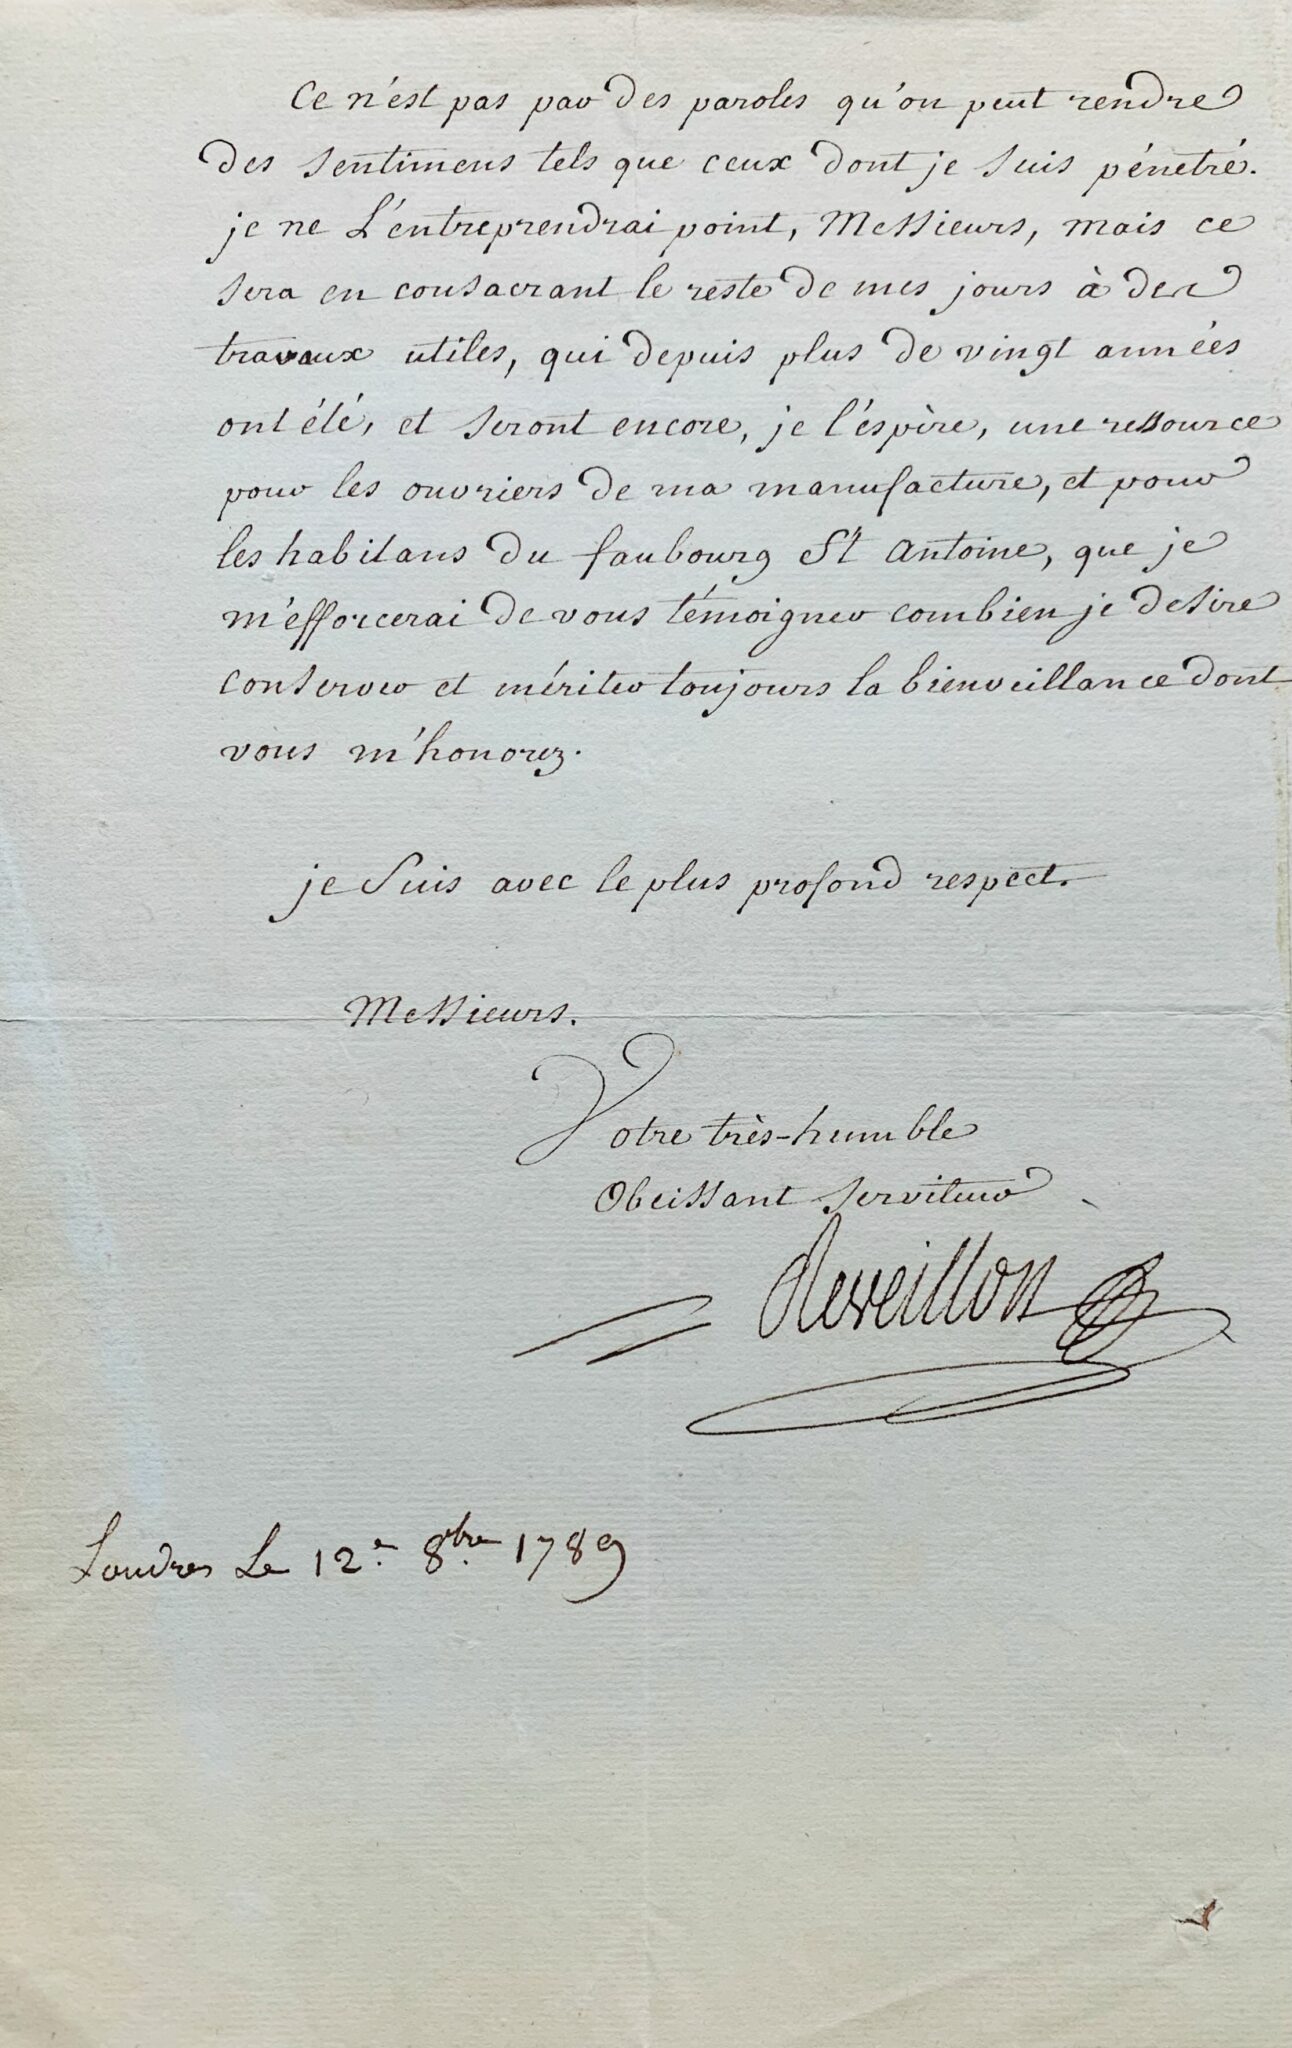 Ce n'est pas par des paroles qu'on peut rendre
des sentimens tels que ceux dont je suis pénetré.
je ne L'entreprendrai point, Messieurs, mais ce
sera en consacrant le reste de mes jours à des
travaux utiles, qui depuis plus de vingt années
ont été, et seront encore, je l'éspère, une ressource
pour les ouvriers de ma manufacture, et pour
les habitans du faubourg St Antoine, que je
m'efforcerai de vous témoigner combien je desire
conserver et mériter toujours la bienveillance dont
vous m'honorez.
je suis avec le plus profond respect.
Messieurs.
Votre très-humble
Obeissant serviteur
Reveillon
Londres Le 12e 8bre 1789